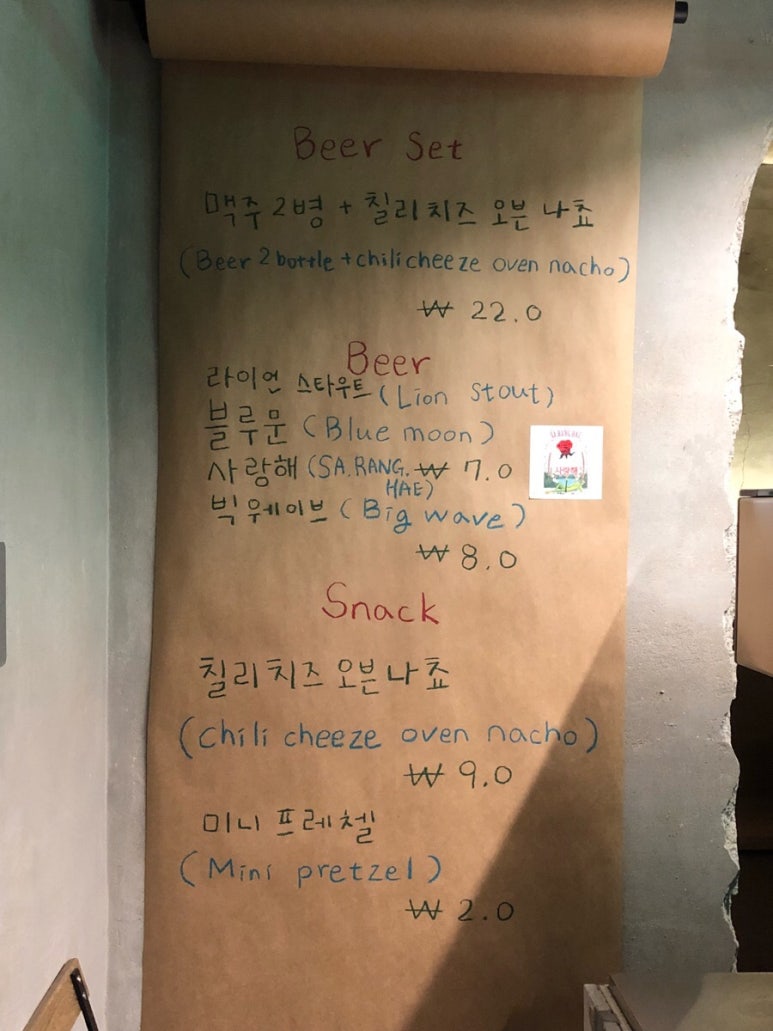 Beer Set
맥주 2병 + 칠리치즈 오븐 나쵸
(Beer 2 bottle + chili cheeze oven nacho)
₩ 22.0
Beer
라이언 스타우트 (Lion Stout)
블루문 (Blue moon)
사랑해 (SA.RANG. ₩ 7.0
HAE)
빅웨이브 (Big wave)
₩ 8.0
Snack
칠리치즈 오븐나쵸
(Chili cheeze oven nacho)
₩ 9.0
미니 프레첼
(Mini pretzel)
₩ 2.0
사랑해